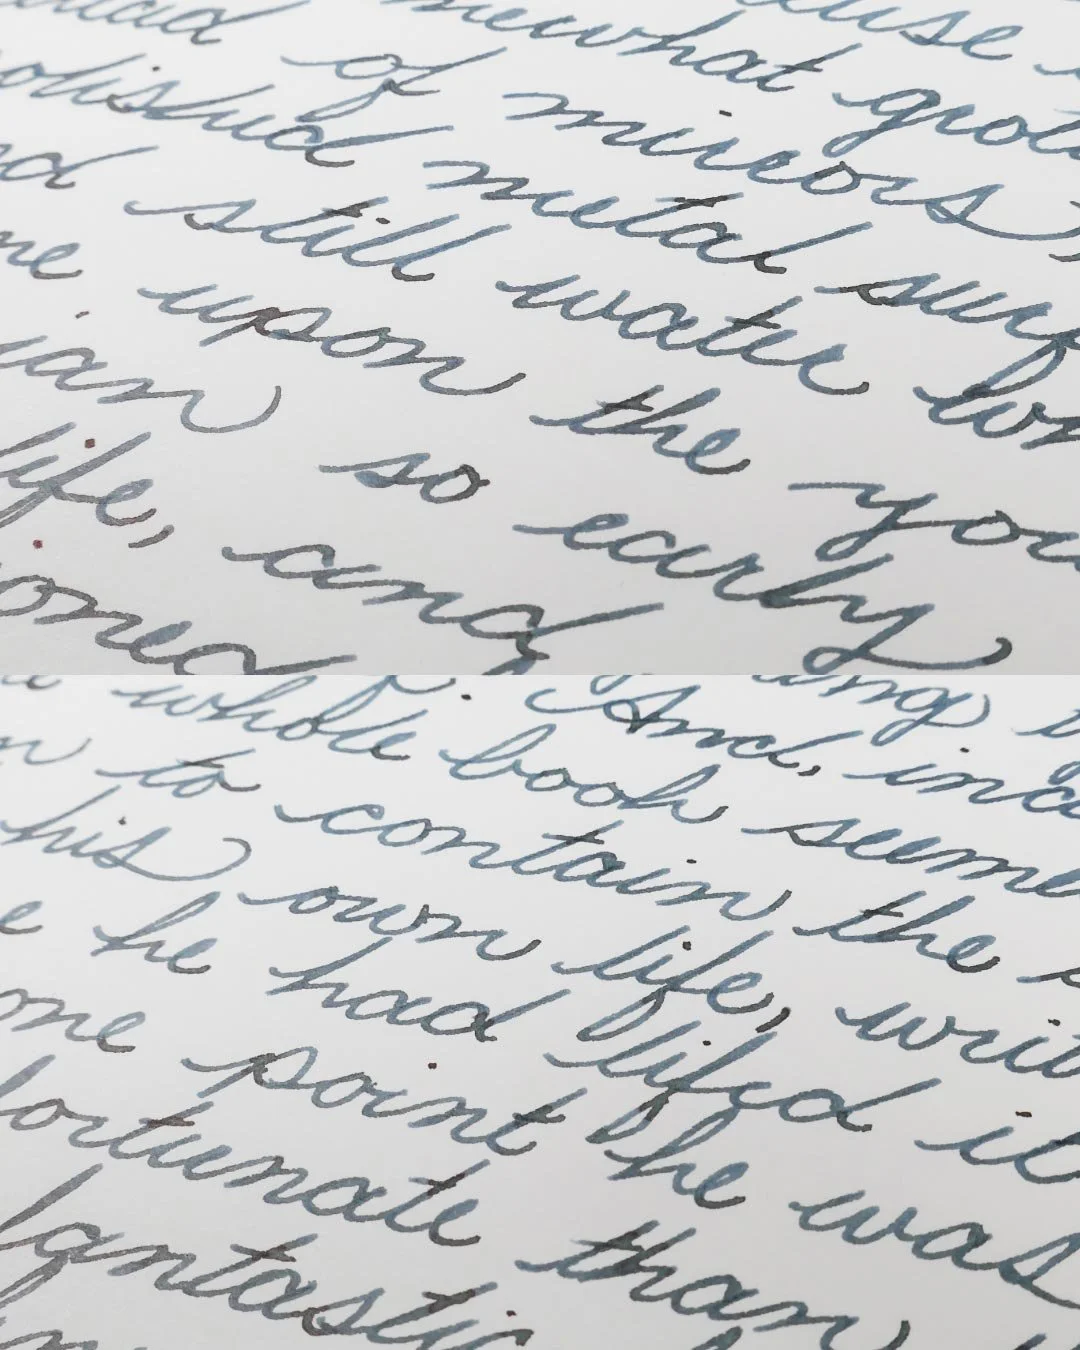 ause
mewhat grot
ead of mirrors,
olished metal surf
nd still water w
me upon the you
ian so early
life, and
oned
And, ind
whole book seeme
to contain the
his own life, writ
he had lived it
one point he was
fortunate than
fantastic